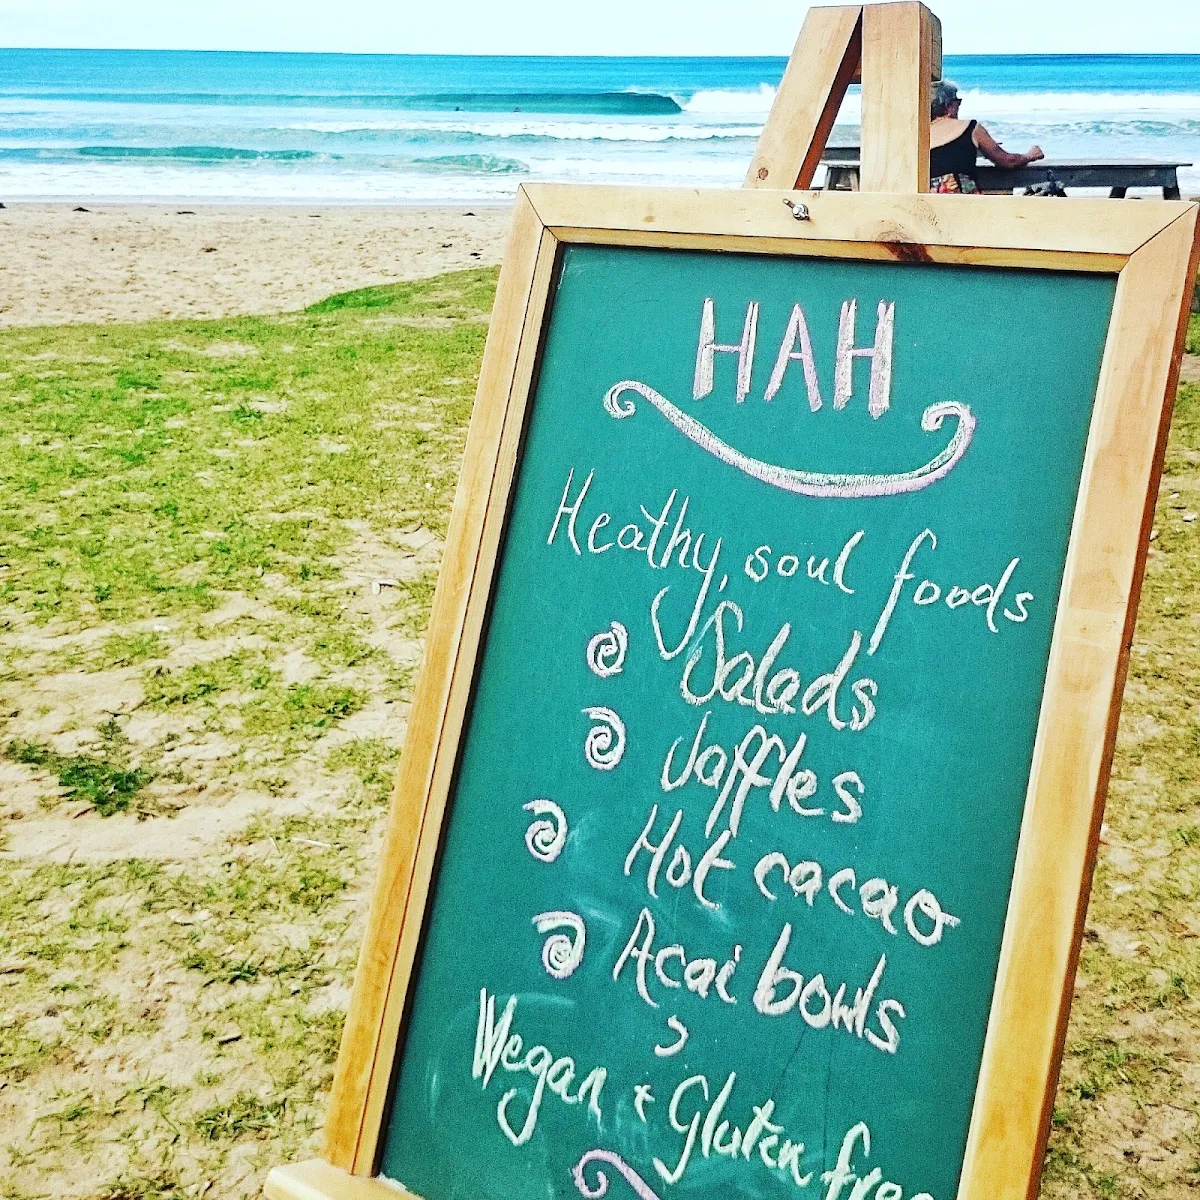 HAH
Heathy, soul foods
Salads
Jaffles
Hot cacao
Acai bowls
Vegan + Gluten free